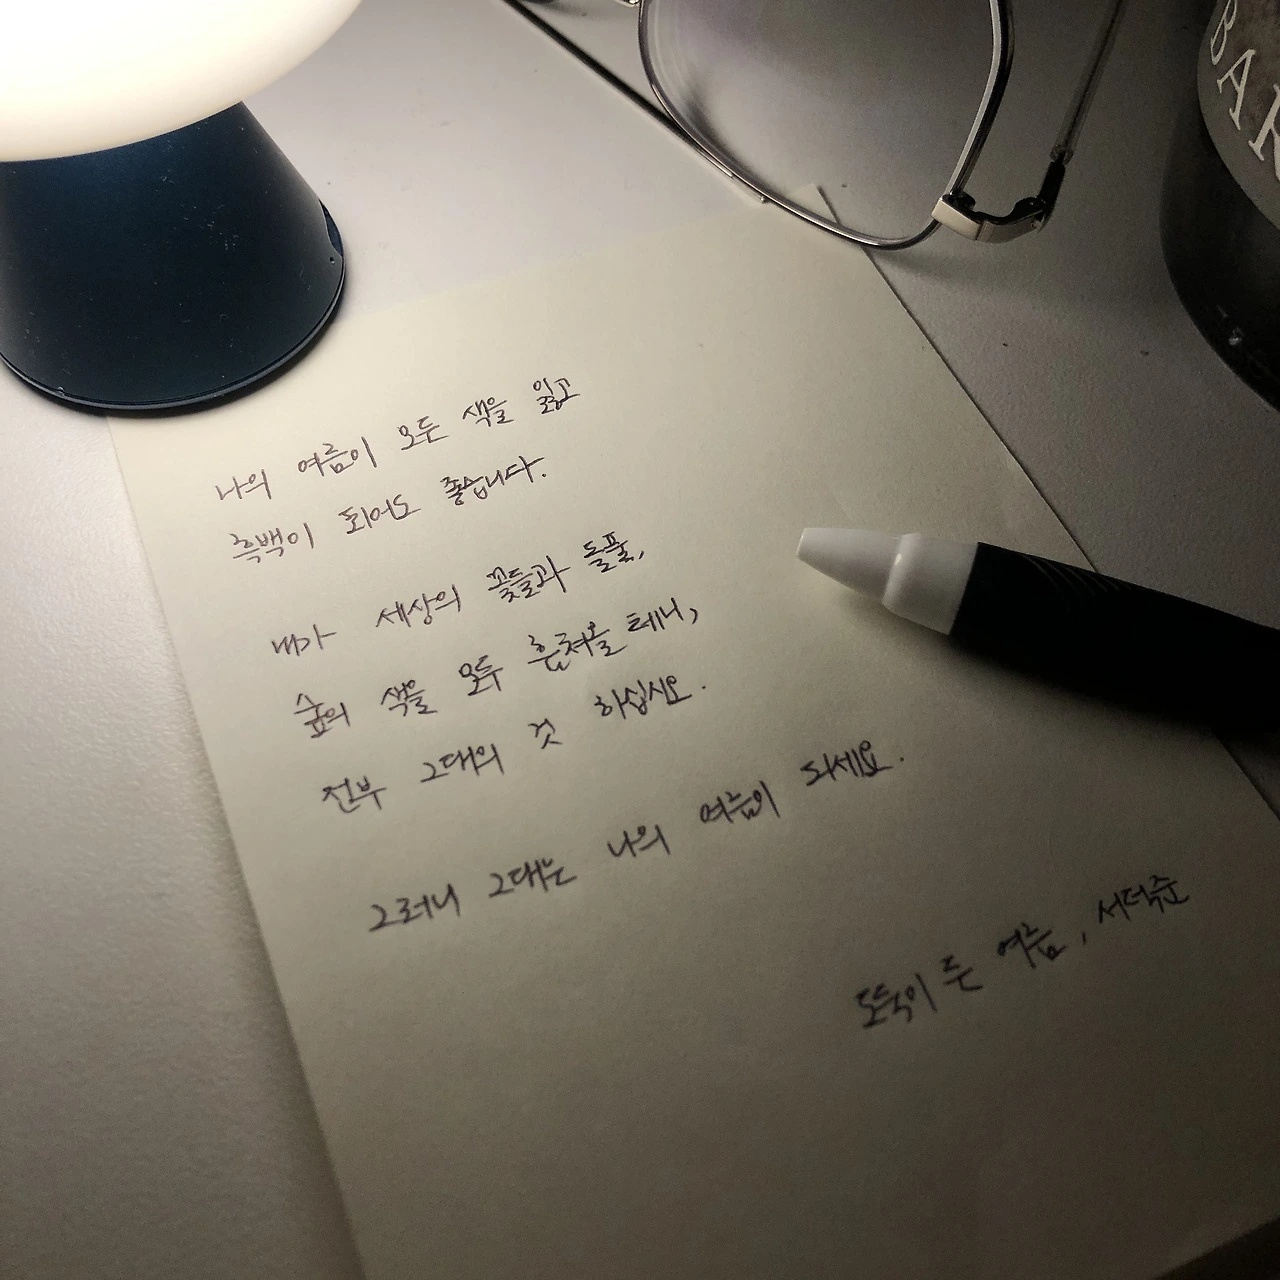 BAK
나의 여름이 모두 색을 잃고
흑백이 되어도 좋습니다.
내가 세상의 꽃들과 들풀,
숲의 색을 모두 훔쳐올 테니,
전부 그대의 것 하십시오.
그러니 그대는 나의 여름이 되세요.
도둑이 든 여름, 서덕준